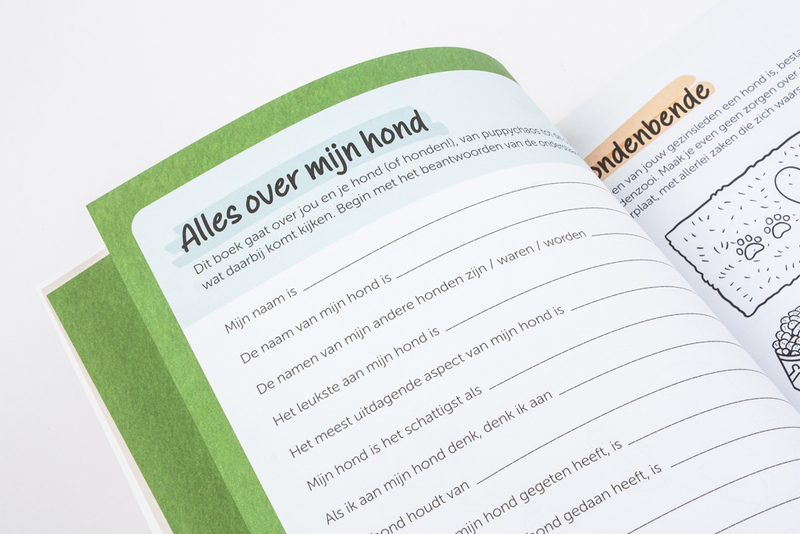 Alles over mijn hond
Dit boek gaat over jou en je hond (of honden!), van puppychaos tot
wat daarbij komt kijken. Begin met het beantwoorden van de
Mijn naam is
De naam van mijn hond is
De namen van mijn andere honden zijn / waren / worden
Het leukste aan mijn hond is
Het meest uitdagende aspect van mijn hond is
Mijn hond is het schattigst als
Als ik aan mijn hond denk, denk ik aan
hond houdt van
mijn hond gegeten heeft, is
hond gedaan heeft, is
ondenbende
en van jouw gezinsleden een hond is, best
denzooi. Maak je even geen zorgen over
rplaat, met allerlei zaken die zich waars